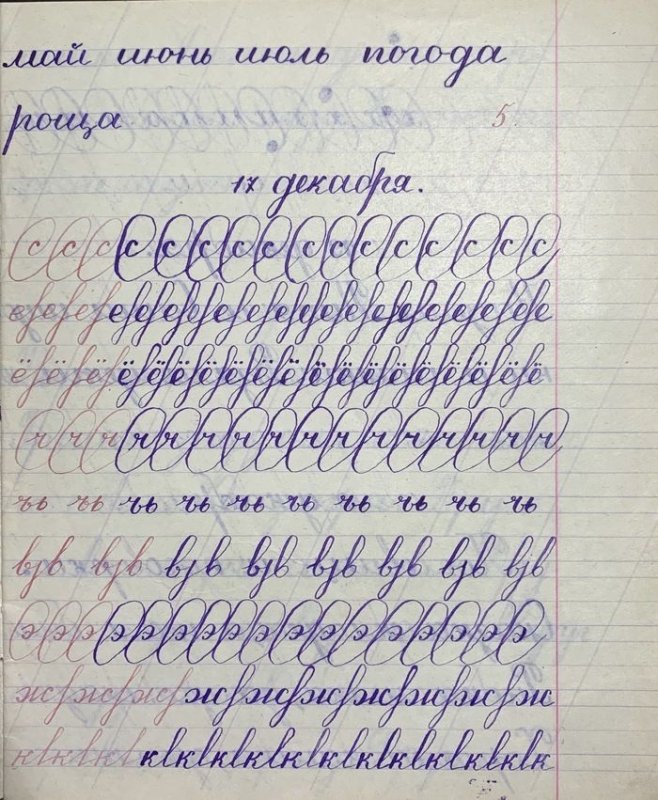 май июнь июль погода
роща 5
17 декабря.
с с с с с с с с с с с с с с с
е е е е е е е е е е е е е е е е
ё ё ё ё ё ё ё ё ё ё ё ё ё ё ё ё ё ё ё
ч ч ч ч ч ч ч ч ч ч ч ч ч ч ч ч
ъь ъь ъь ъь ъь ъь ъь ъь ъь ъь
в в в в в в в в в в в в в в в в
э э э э э э э э э э э э э э э э э
ж ж ж ж ж ж ж ж ж ж
к к к к к к к к к к к к к к к